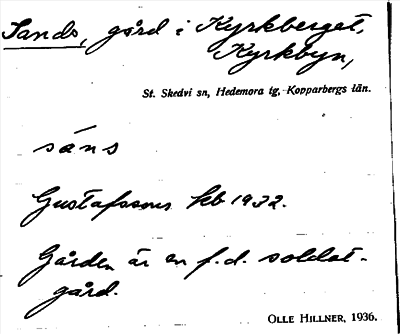 Sands, gård i Kyrkberget,
Kyrkbyn,
St. Skedvi sn, Hedemora tg, Kopparbergs län.
sáns
Gustafssons kb 1932.
Gården är en f.d. soldat-
gård.
OLLE HILLNER, 1936.